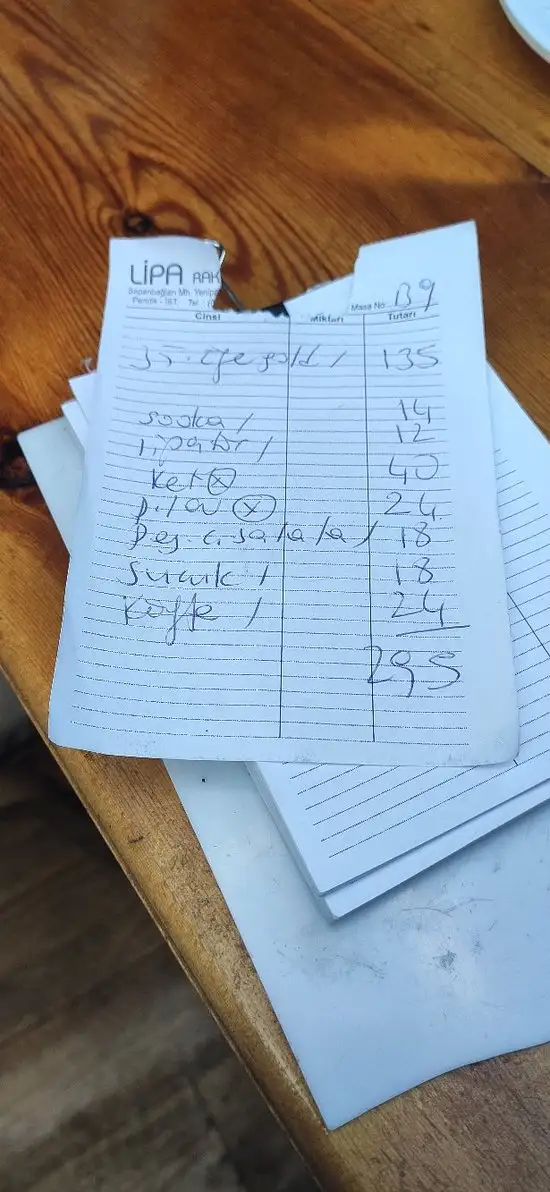 LİPA RAK
Sapanbağları Mh. Yenişe
Pendik - İST. Tel : (0
Masa No: B9
Cinsi Miktarı Tutarı
35. efe gold / 135
sooka / 14
12
Ket ⓧ 40
Pilav ⓧ 24
Peş. C. salata / 18
Sucuk / 18
Köfte / 24
295